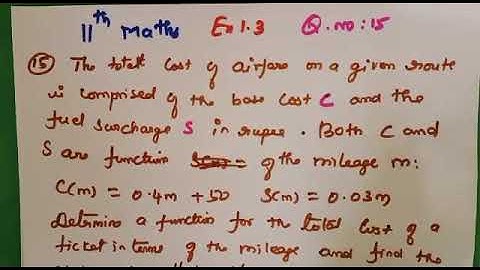 11th Maths Ex 1.3 Q.no: 15
15 The total cost of airfare on a given route
is comprised of the base cost C and the
fuel surcharge S in rupee. Both C and
S are function of the mileage m:
C(m) = 0.4m + 50 S(m) = 0.03m
Determine a function for the total cost of a
ticket in terms of the mileage and find the